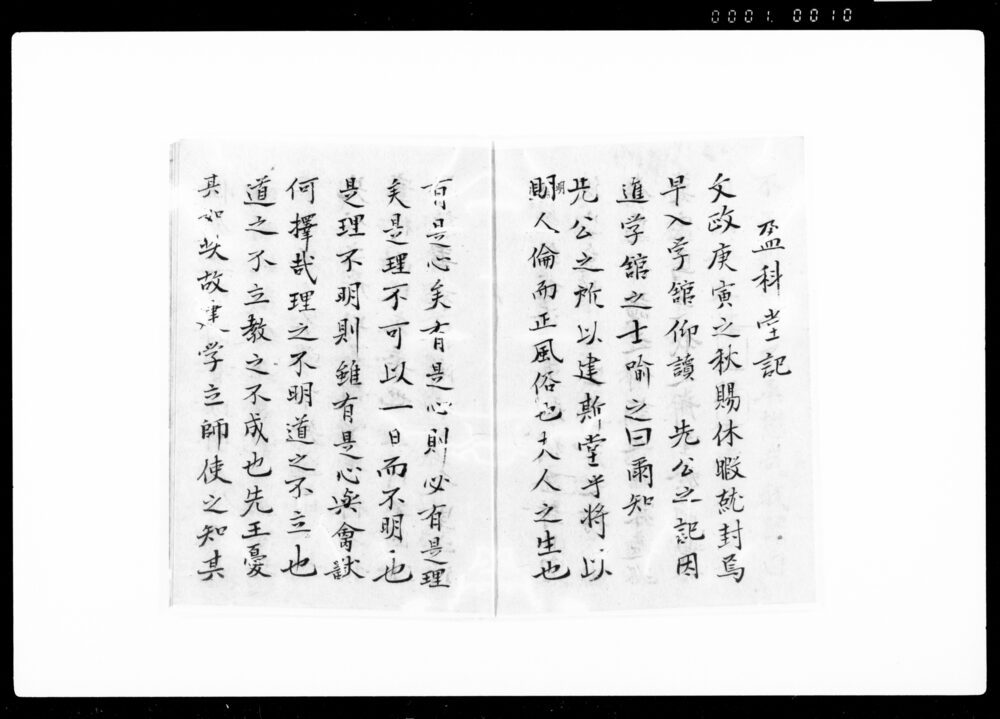 0001. 0010
盈科堂記
文政庚寅之秋賜休暇就封焉
早入学舘仰讀先公之記因
進学舘之士喻之曰爾知
先公之所以建斯堂乎将以
明人倫而正風俗也夫人之生也
有是心矣有是心則必有是理
矣是理不可以一日而不明也
是理不明則雖有是心與禽獣
何擇哉理之不明道之不立也
道之不立教之不成也先王憂
其如此故建学立師使之知其